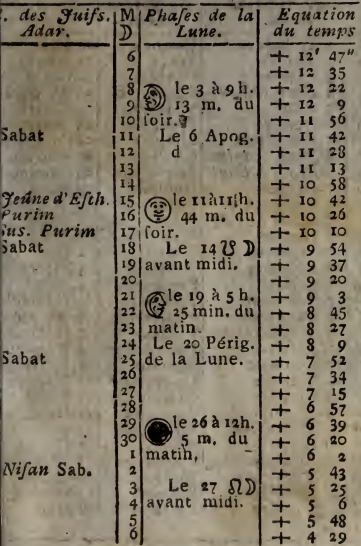 . des Juifs. M Phases de la Equation
Adar. D Lune. du temps
6 + 12' 47"
7 + 12 35
8 le 3 à 9 h. + 12 22
9 13 m. du + 12 9
10 soir. + 11 56
Sabat 11 Le 6 Apog. + 11 42
12 d + 11 28
13 + 11 13
14 + 10 58
Jeûne d'Esth. 15 le 11 à 11 h. + 10 42
Purim 16 44 m. du + 10 26
Sus. Purim 17 soir. + 10 10
Sabat 18 Le 14 ☋ ☽ + 9 54
19 avant midi. + 9 37
20 + 9 20
21 le 19 à 5 h. + 9 3
22 25 min. du + 8 45
23 matin. + 8 27
24 Le 20 Périg. + 8 9
Sabat 25 de la Lune. + 7 52
26 + 7 34
27 + 7 15
28 + 6 57
29 le 26 à 12h. + 6 39
30 5 m. du + 6 20
1 matin, + 6 2
Nisan Sab. 2 + 5 43
3 Le 27 ☊ ☽ + 5 25
4 avant midi. + 5 6
5 + 5 48
6 + 4 29